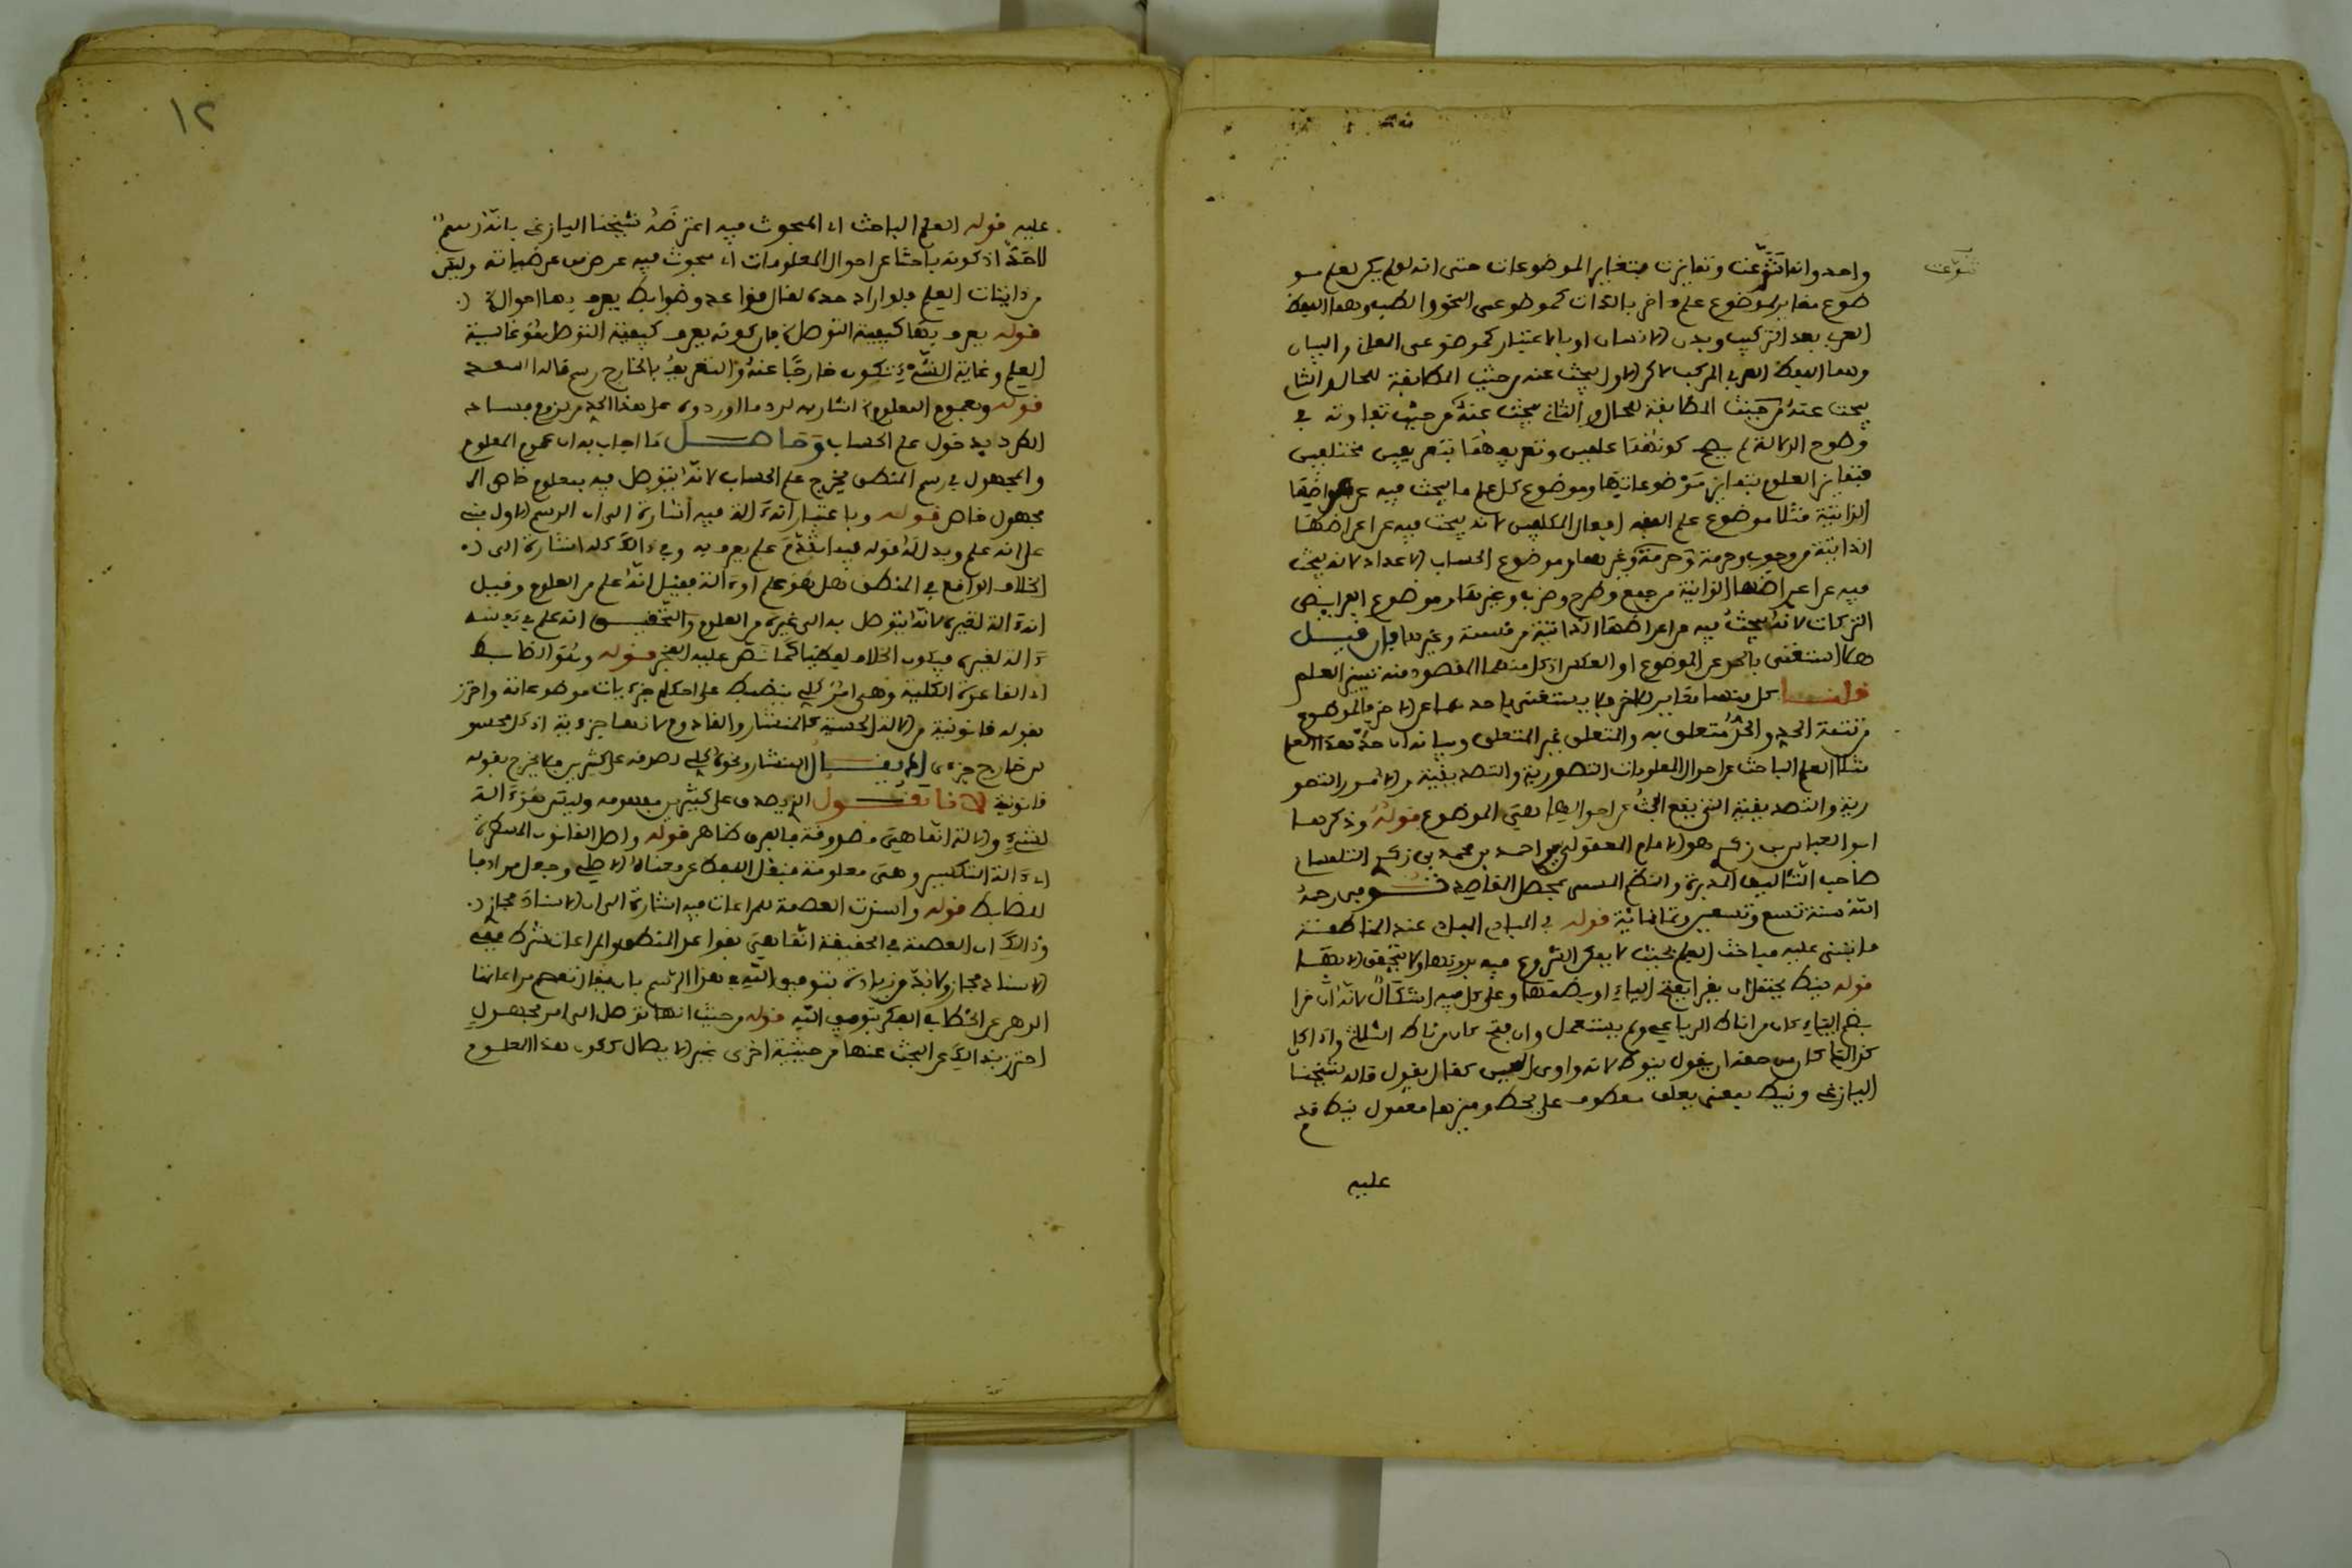 واحد وانما تنوعت وتمايزت بتغاير الموضوعات حتى انه لو لم يكن لعلم مو
تنوعت
ضوع مغاير لموضوع علم اخر بالذات كموضوعى النحو والطب وهما اللفظ
العربى بعد التركيب وبدن الانسان او بالاعتبار كموضوعى المعانى والبيان
وهما اللفظ العربى المركب لاكن الاول يبحث عنه من حيث المطابقة للحال والثانى
يبحث عنه من حيث المطابقة للحال والثانى يبحث عنه من حيث تفاوته فى
وضوح الدلالة لم يصح كونهما علمين وتعريفهما بتعريفين مختلفين
فتمايز العلوم بتمايز موضوعاتها وموضوع كل علم ما يبحث فيه عن عوارضها
الذاتية مثلا موضوع علم الفقه افعال المكلفين لانه يبحث فيه عن اعراضها
الذاتية من وجوب وحرمة وغيرهما وموضوع الحساب الاعداد لانه يبحث
فيه عن اعراضها الذاتية من جمع وطرح وضرب وغيرها وموضوع الفرايض
التركات لانه يبحث فيه عن اعراضها الذاتية من قسمة وغيرها فان قيل
هلا استغنى بالحد عن الموضوع او العكس اذ كل منهما المقصود منه تمييز العلم
قلنا كل منهما مغاير للاخر ولا يستغنى باحدهما عن الاخر فالموضوع
من تتمة الحد والحد متعلق به والمتعلق غير المتعلق وبيانه ان حد هذا العلم
مثلا العلم الباحث عن احوال المعلومات التصورية والتصديقية والامور التصو
رية والتصديقية التى يقع البحث عن احوالها هى الموضوع قوله وذكرها
ابو العباس بن زكرى هو الامام المعقولى احمد بن محمد بن زكرى التلمسانى
صاحب التآليف العديدة والنظم المسمى بمحصل المقاصد توفى رحمه
الله سنة تسع وتسعين وثمانمائة قوله فى المبادى المبادى عند المناطقة
ما بنى عليه مباحث العلم بحيث لا يمكن الشروع فيه بدونها ولا تتحقق الا بها
قوله ينط يحتمل ان يقرا بفتح الياء او بضمها وعلى كل فيه اشكال لانه ان قرا
بضم الياء كان من اناط الرباعى ولم يستعمل وان فتح كان من ناط الثلاثى واذا كا
ن كذلك كان من حقه ان يقول ينوط لانه واوى العين كقال يقول قاله شيخنا
اليازغى ونيط بمعنى يعلق معطوف على يحط وميزها مفعول ينط قدم
عليه
١٢
عليه قوله العلم الباحث اى المبحوث فيه اعترضه شيخنا اليازغى بانه رسم
لا حد اذ كونه باحثا عن احوال المعلومات اى مبحوث فيه عرض من عرضياته وليس
من ذاتيات العلم فلو اراد حده لقال قواعد وضوابط يعرف بها احوال
قوله يعرف بها كيفية التوصل فان كونه يعرف كيفية التوصل هو غاية
العلم وغاية الشىء تكون خارجا عنه والتعريف بالخارج رسم قاله السعد
قوله وبعموم المعلوم اشار به لرد ما اوردوه على هذا الحد من لزوم فساد
الطرد بدخول علم الحساب وحاصل ما اجاب به ان عموم المعلوم
والمجهول فى رسم المنطق يخرج علم الحساب لانه يتوصل فيه بمعلوم خاص الى
مجهول خاص قوله وباعتبار انه ءالة فيه اشارة الى ان الرسم الاول بنى
على انه علم ويدل له قوله فيما تقدم علم يعرف به وفى ذالك كله اشارة الى
الخلاف الواقع فى المنطق هل هو علم او ءالة فقيل انه علم من العلوم وقيل
انه ءالة لغيره لانه يتوصل به الى غيره من العلوم والتحقيق انه علم فى نفسه
ءالة لغيره فيكون الخلاف لفظيا كما نص عليه الفخر قوله وهو الضابط
اى القاعدة الكلية وهى امر كلى ينضبط على احكام جزءيات موضوعاته واحترز
بقوله قانونية من الالة الحسية كالمنشار والقادوم لانها جزءية اذ كل محسو
س خارج جزءى لا يقال المنشار ونحوه كلى لصدقه على كثيرين فلا يخرج بقوله
قانونية لانا نقول الذى يصدق على كثيرين مفهومه وليس هو ءالة
لشىء والالة انما هى مصدوقه فالفرق ظاهر قوله واصل القانون المسطرة
اى ءالة التسطير وهى معلومة فنقل اللفظ عن معناه الاصلى وجعل مرادفا
للضابط قوله واسندت العصمة للمراعات فيه اشارة الى ان الاسناد مجاز
وذالك ان العصمة فى الحقيقة انما هى بقواعد المنطق والمراعات شرط ففى
الاسناد مجاز ولا بد من زيادة بتوفيق الله فى هذا الرسم بان يقال تعصم مراعاتها
الذهن عن الخطا فى الفكر بتوفيق الله قوله من حيث انها توصل الى امر مجهول
احترز بذالك عن البحث عنها من حيثية اخرى غير الايصال ككون هذا المعلوم